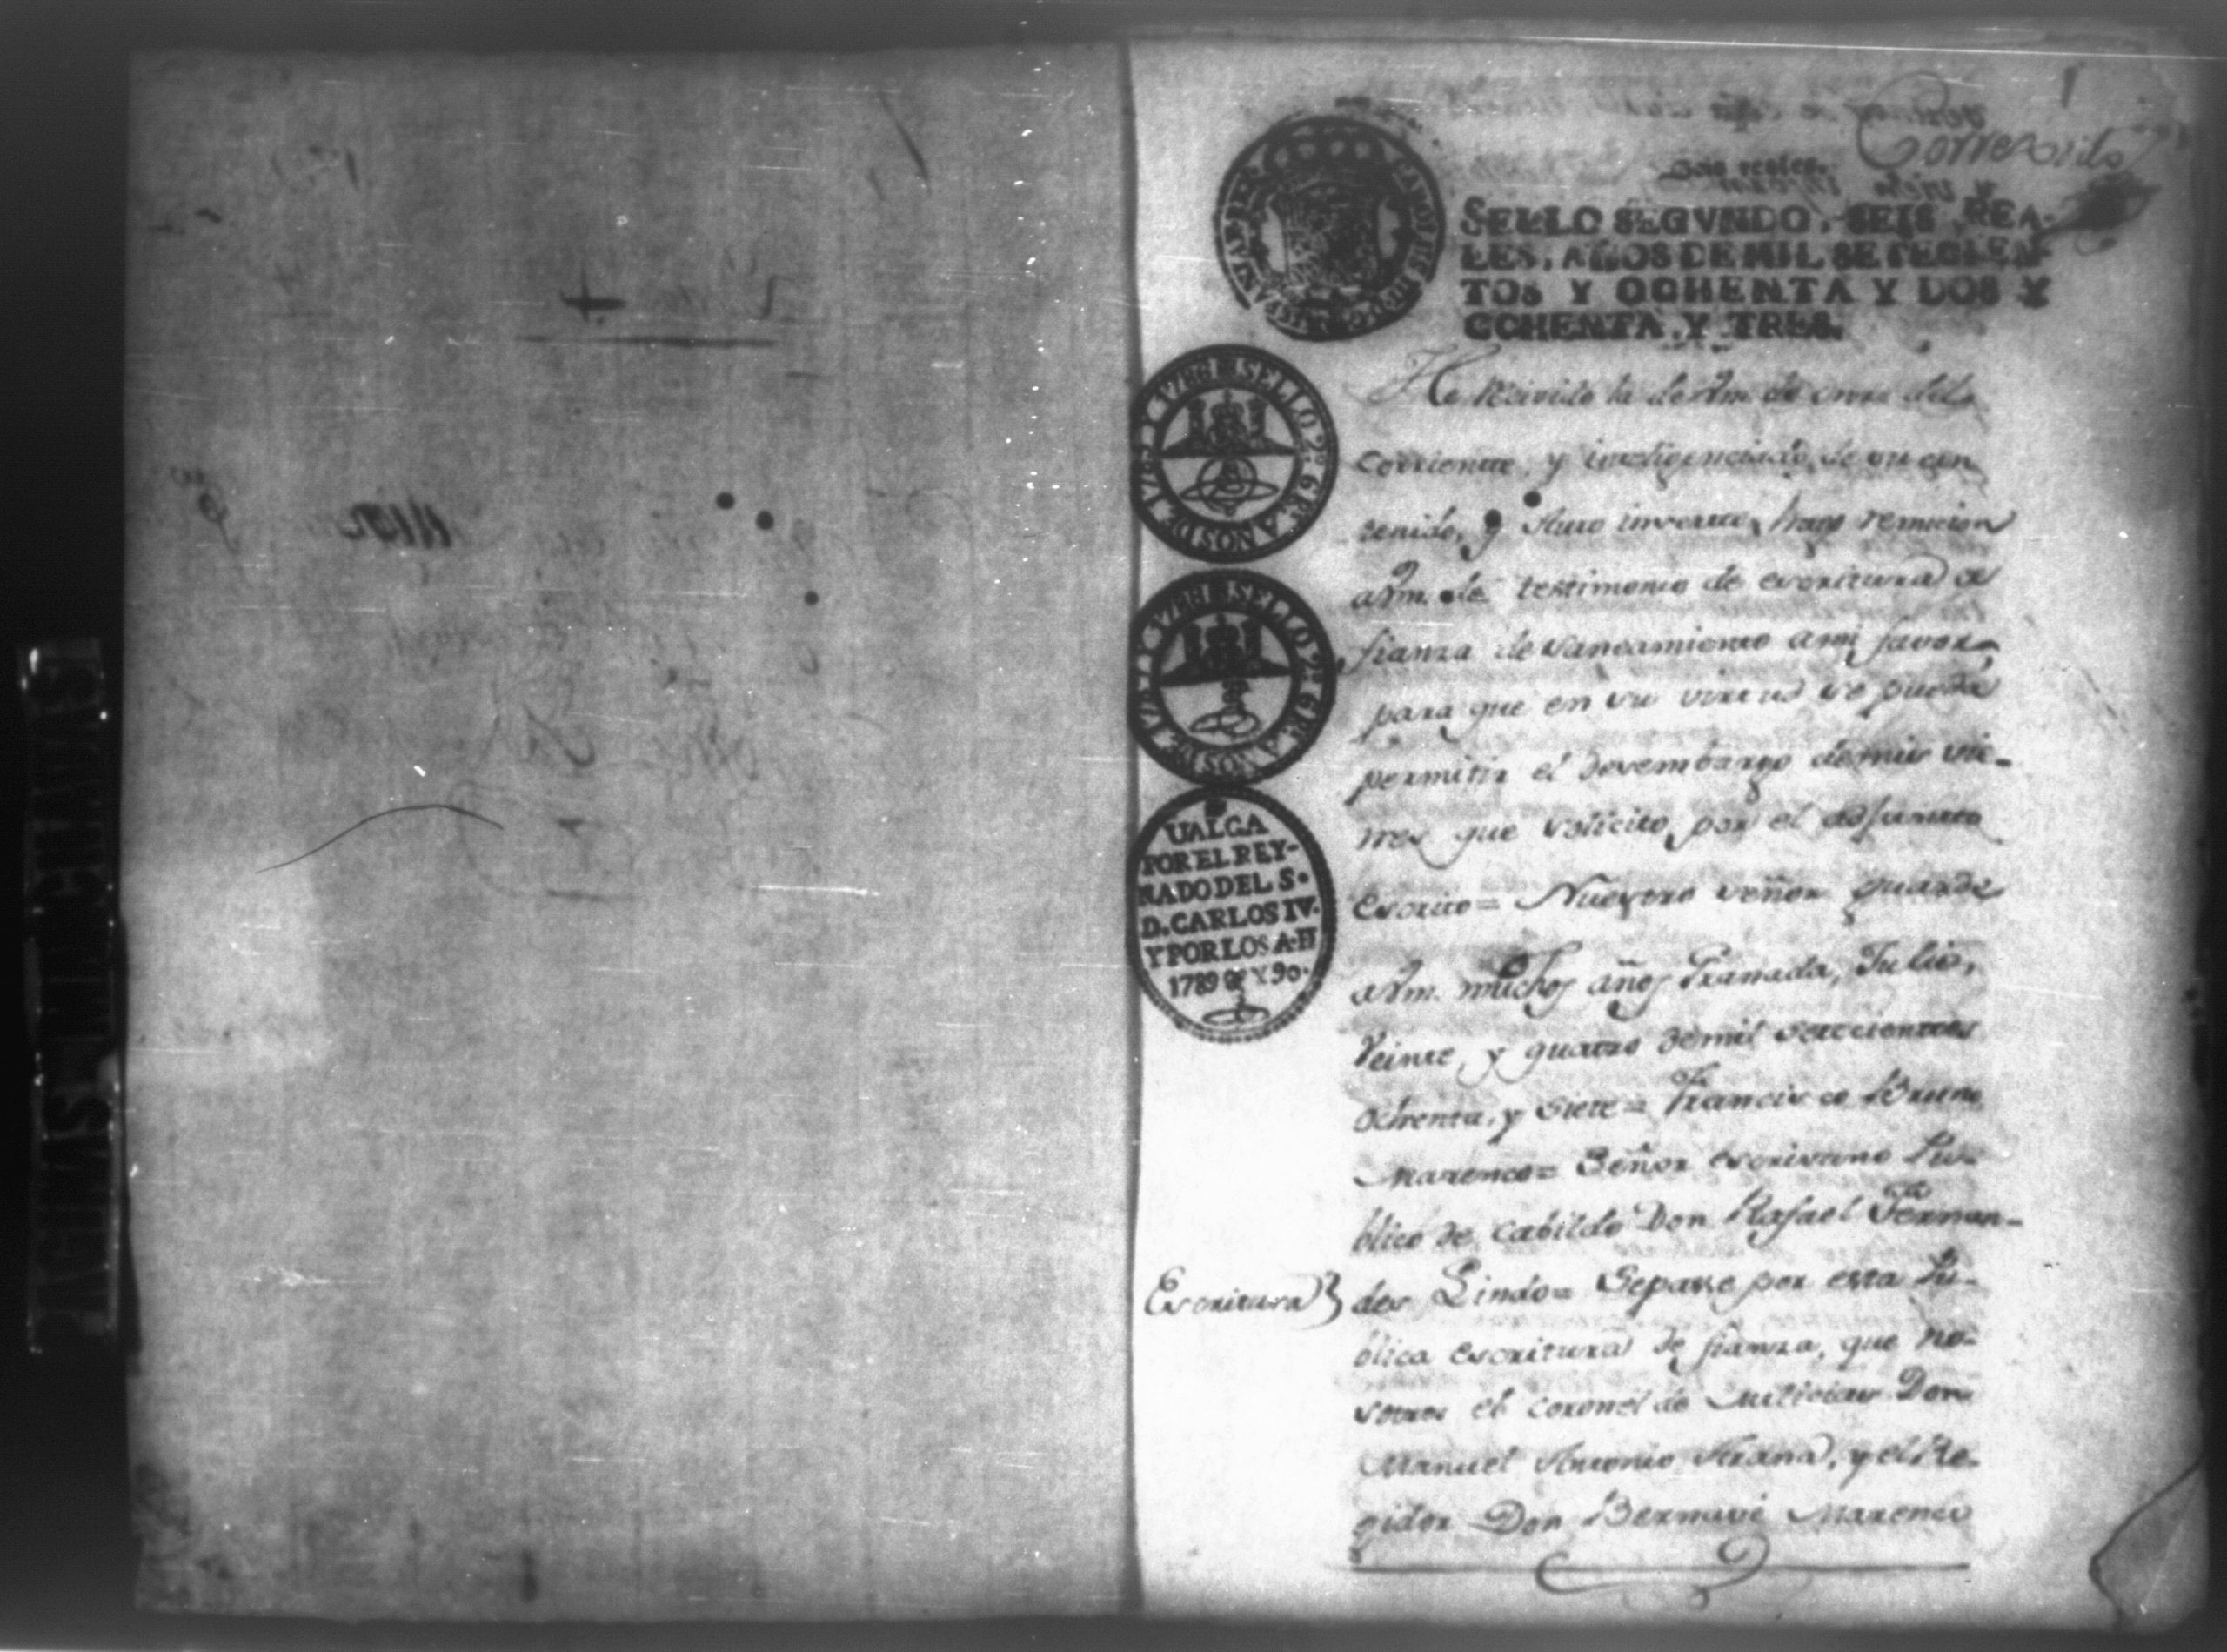 1
Corregido
Seis reales.
SELLO SEGVNDO, SEIS REA-
LES, AÑOS DE MIL SETECIEN-
TOS Y OCHENTA Y DOS Y
OCHENTA, Y TRES.
SELLO 2º. 6 Rs. AÑOS DE 1787 Y 1788
SELLO 2º. 6 Rs. AÑOS DE 1787 Y 1788
UALGA
POR EL REY-
NADO DEL S.
D. CARLOS IV.
Y POR LOS A.
1789 Y 90.
He Recivido la de Vm. de onze del
corriente, y inteligenciado de su con
tenido, y Auto inserto, hago remicion
a Vm. de testimonio de escritura de
fianza de saneamiento a mi favor,
para que en su virtud se pueda
permitir el desembargo de mis vie-
nes que solicito, por el adjunto
escrito= Nuestro señor guarde
a Vm. muchos años Granada, Julio,
Veinte, y quatro de mil setecientos
ochenta, y siete= Francisco Bruno
Marenco= Señor escrivano Pu-
blico de Cabildo Don Rafael Fernan-
Escritura} des Lindo= Sepase por esta Pu-
blica escritura de fianza, que no-
sotros el coronel de Milicias Don
Manuel Antonio Arana, y el Re-
gidor Don Bernavé Marenco